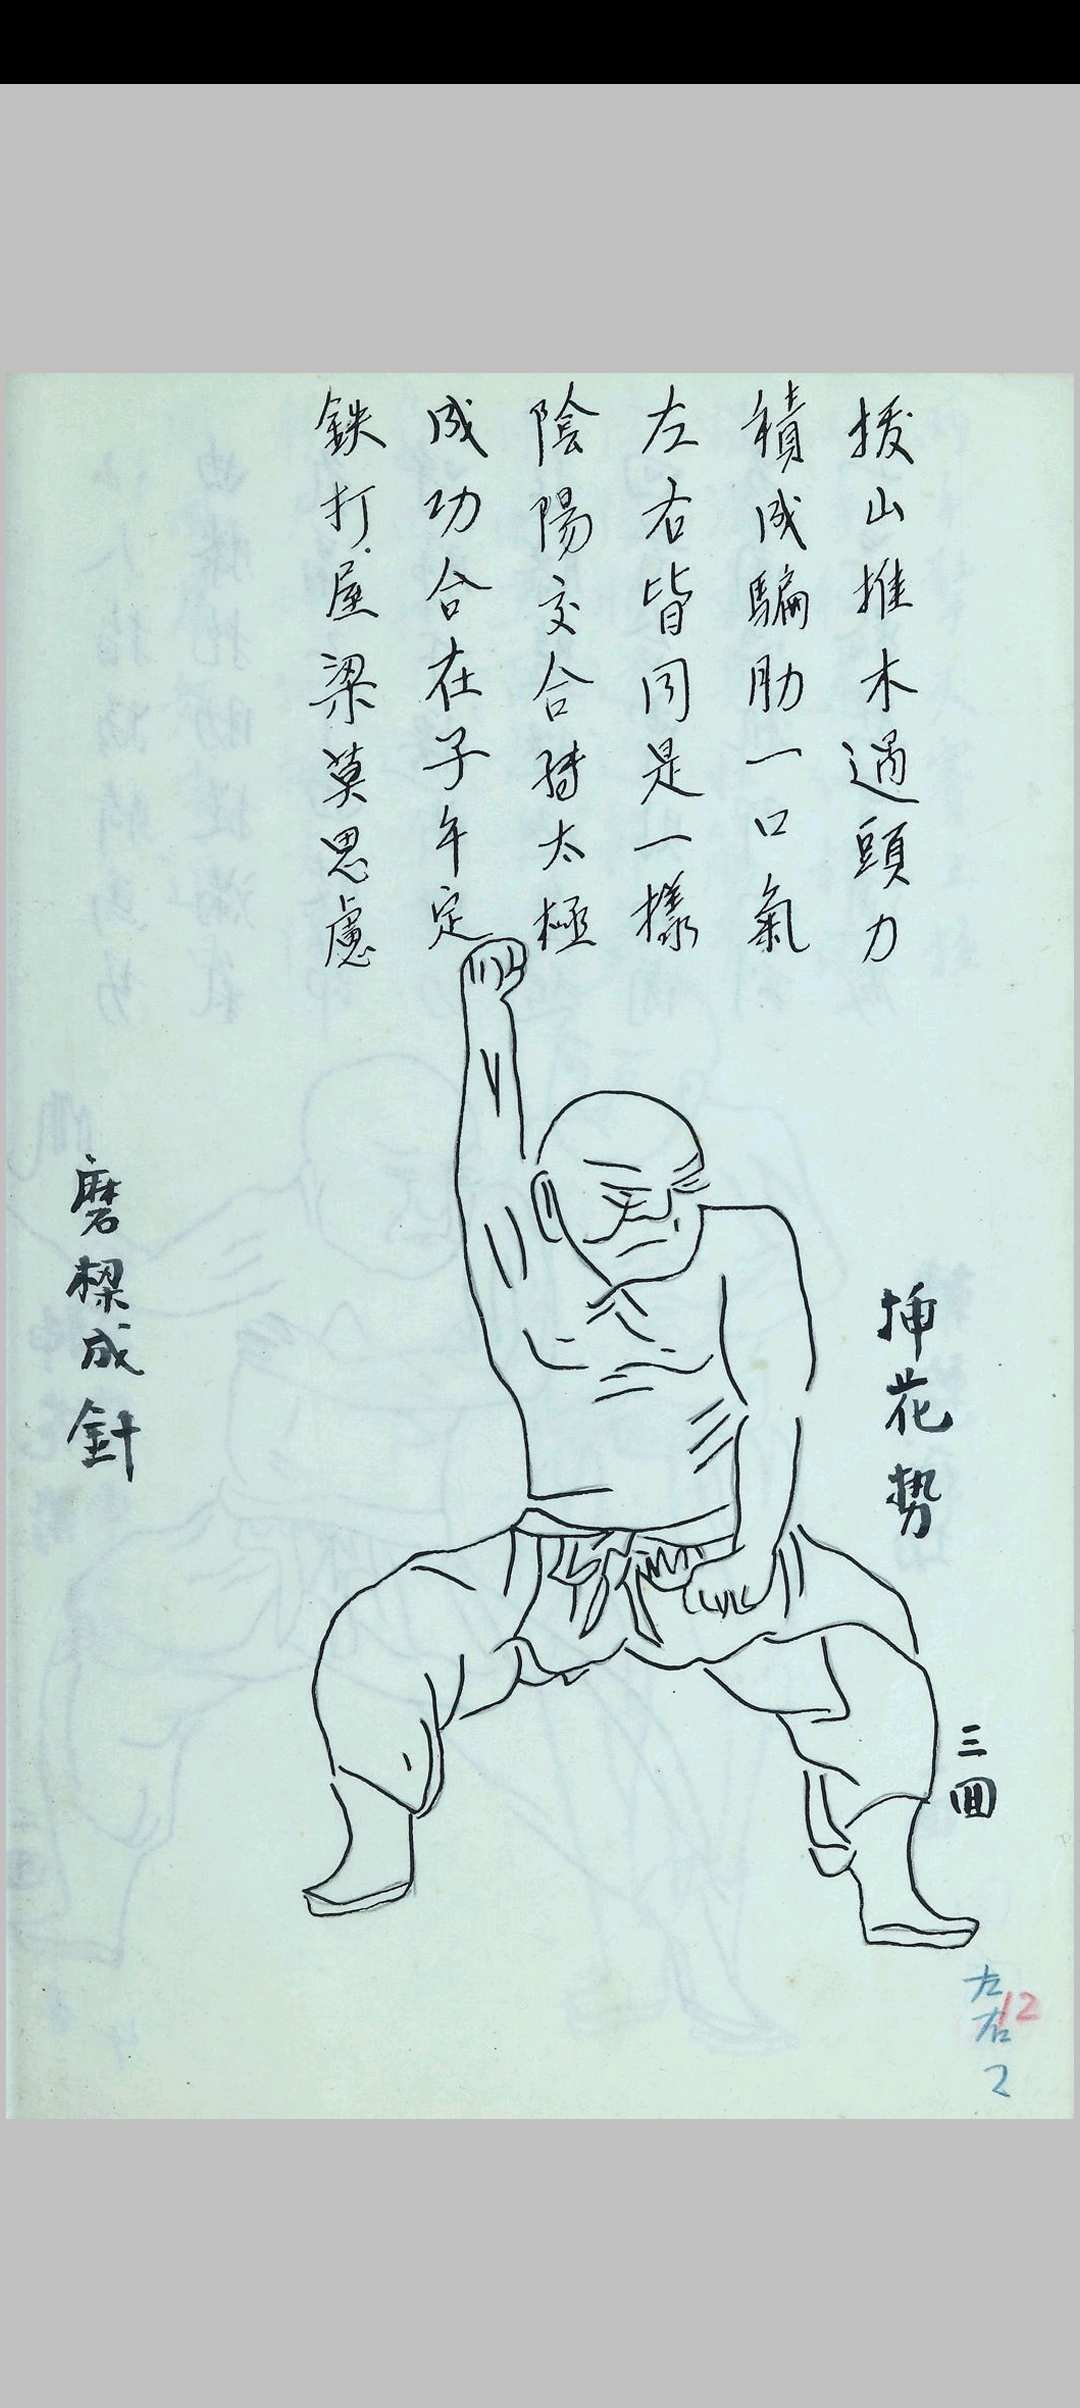 拔山推木過頭力
積成騙肋一口氣
左右皆同是一樣
陰陽交合轉太極
成功合在子午定
鉄打屋梁莫思慮
挿花勢
磨樑成針
三囬
左右
12
2